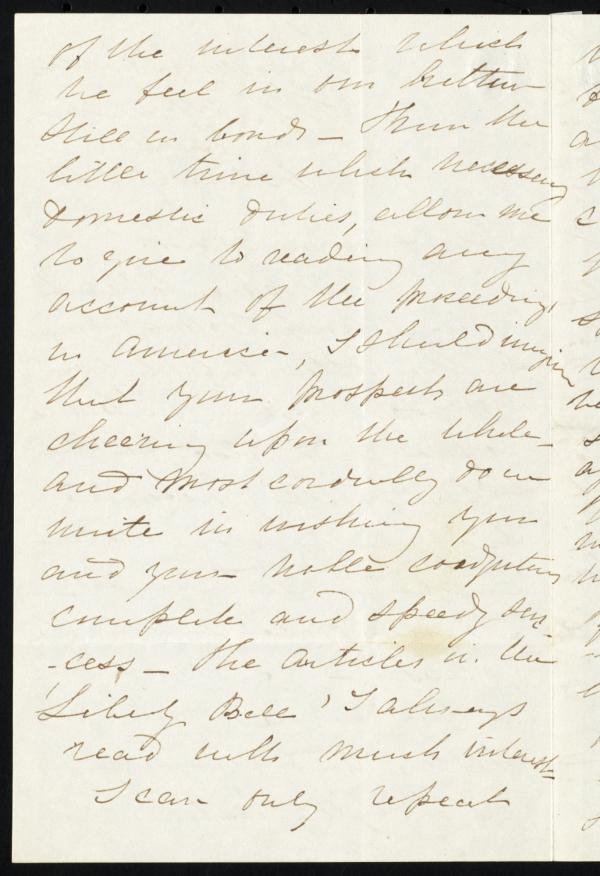 of the interest which
we feel in our brethren
still in bonds – From the
little time which necessary
domestic duties, allow me
to give to reading any
account of the proceedings
in America, I should imagine
that your prospects are
cheering upon the whole –
and most cordially do we
unite in wishing you
and your noble coadjutors
complete and speedy suc-
-cess – The articles in the
'Liberty Bell' I always
read with much interest –
I can only repeat